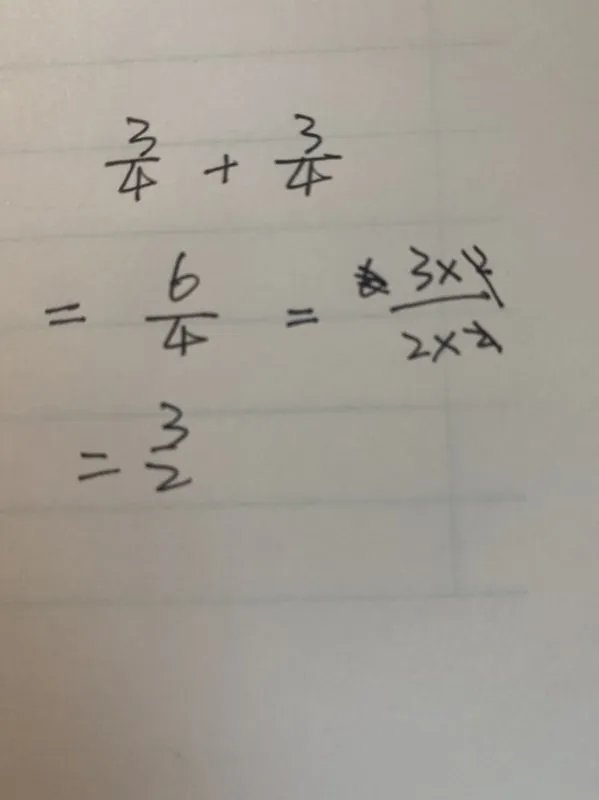 3/4 + 3/4
= 6/4 = 3×2/2×2
= 3/2